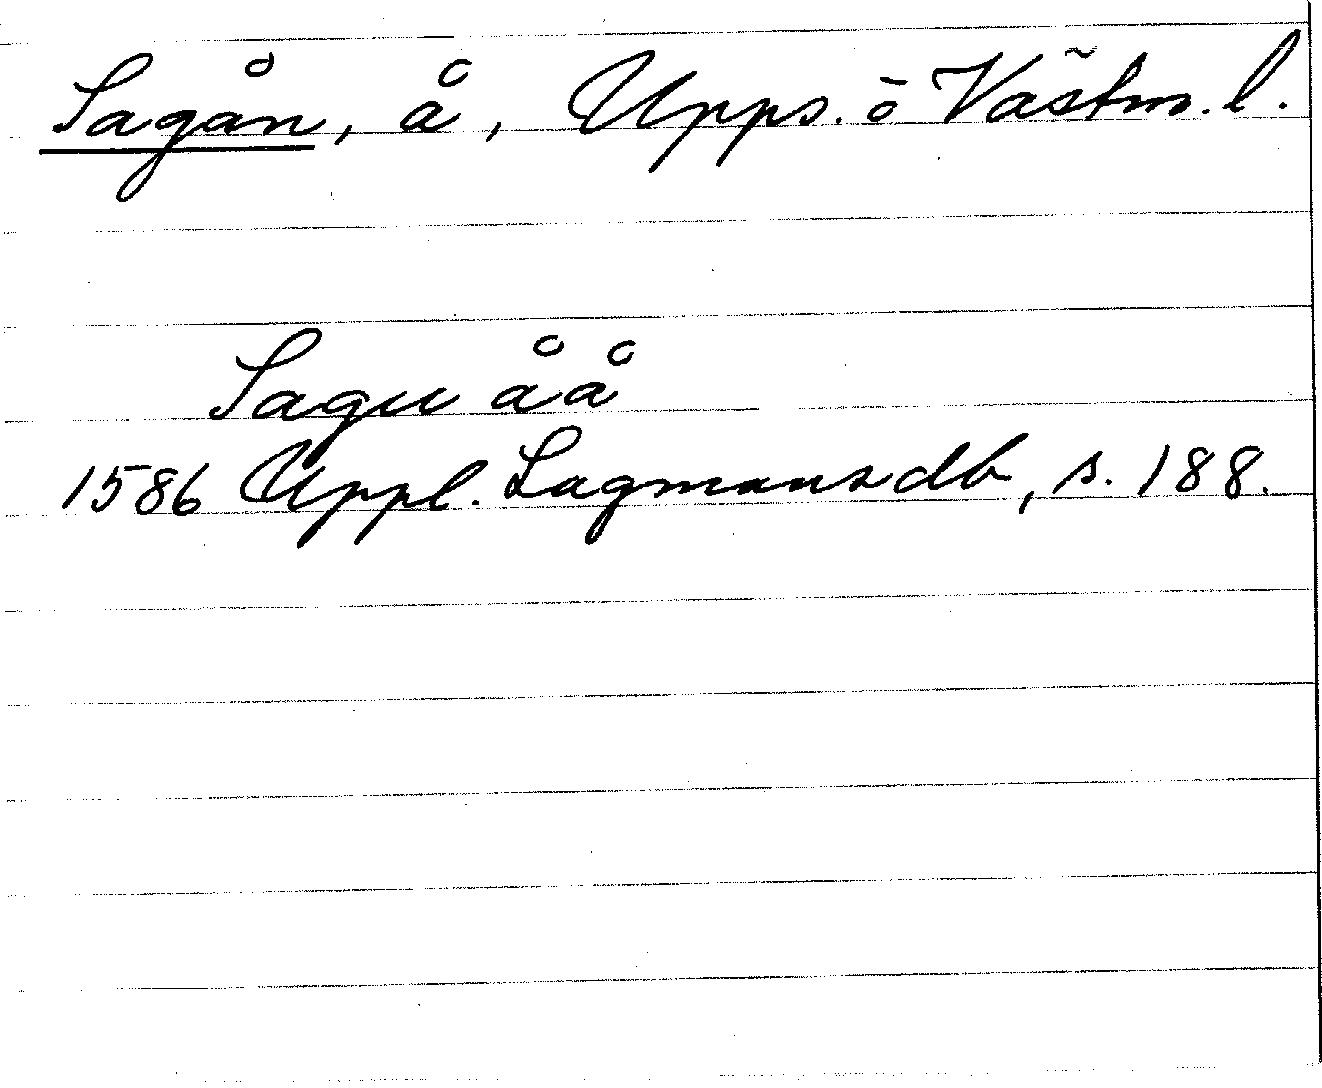 Sagån, å, Upps. ö Västm. l.
Sagu åå
1586 Uppl. Lagmansdb, s. 188.